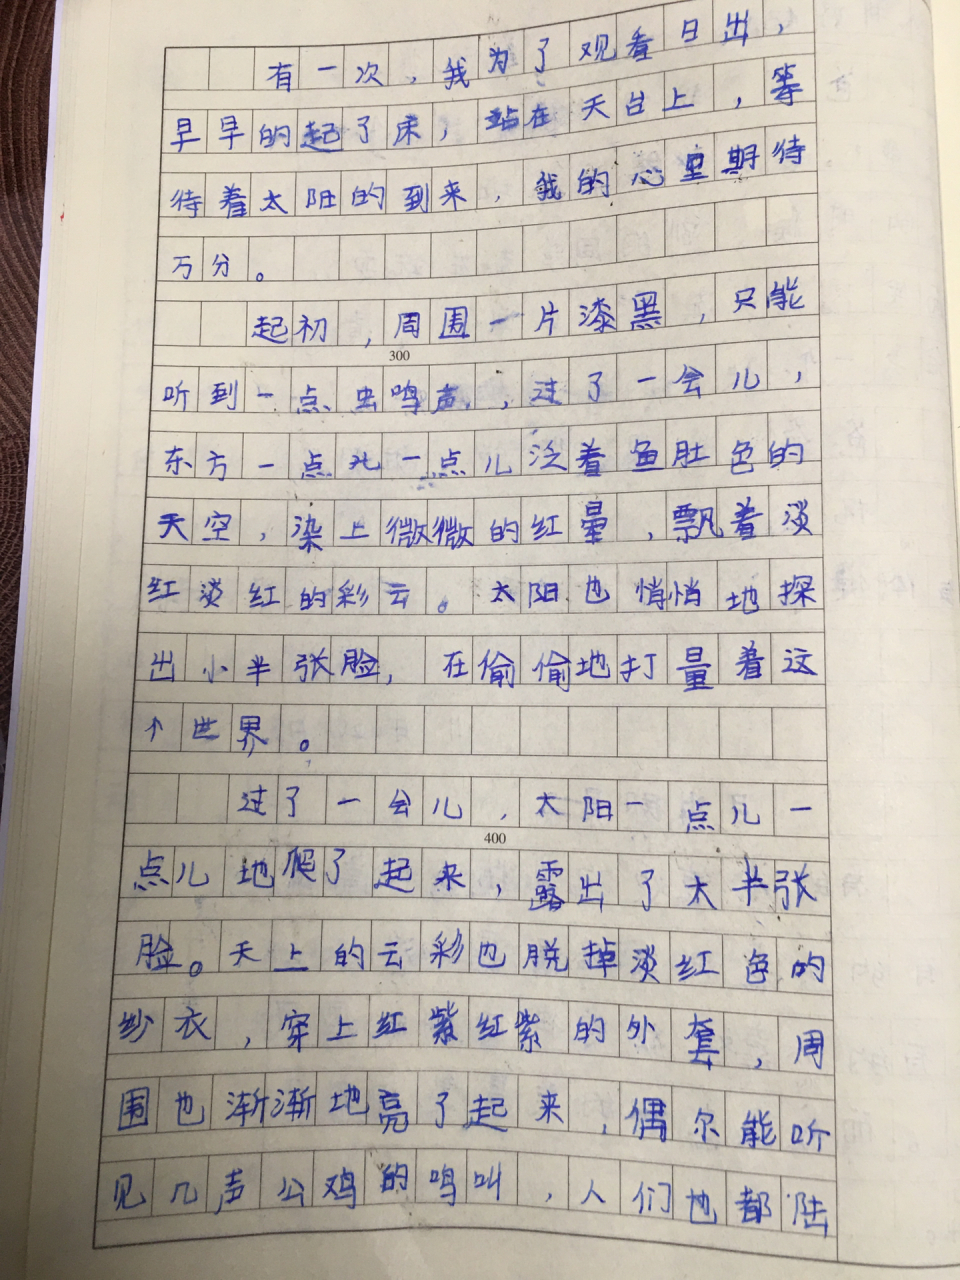 有一次，我为了观看日出，
早早的起了床，站在天台上，等
待着太阳的到来，我的心里期待
万分。
起初，周围一片漆黑，只能
300
听到一点虫鸣声，过了一会儿，
东方一点儿一点儿泛着鱼肚色的
天空，染上微微的红晕，飘着淡
红淡红的彩云。太阳也悄悄地探
出小半张脸，在偷偷地打量着这
个世界。
过了一会儿，太阳一点儿一
400
点儿地爬了起来，露出了大半张
脸。天上的云彩也脱掉淡红色的
纱衣，穿上红紫红紫的外套，周
围也渐渐地亮了起来，偶尔能听
见几声公鸡的鸣叫，人们也都陆